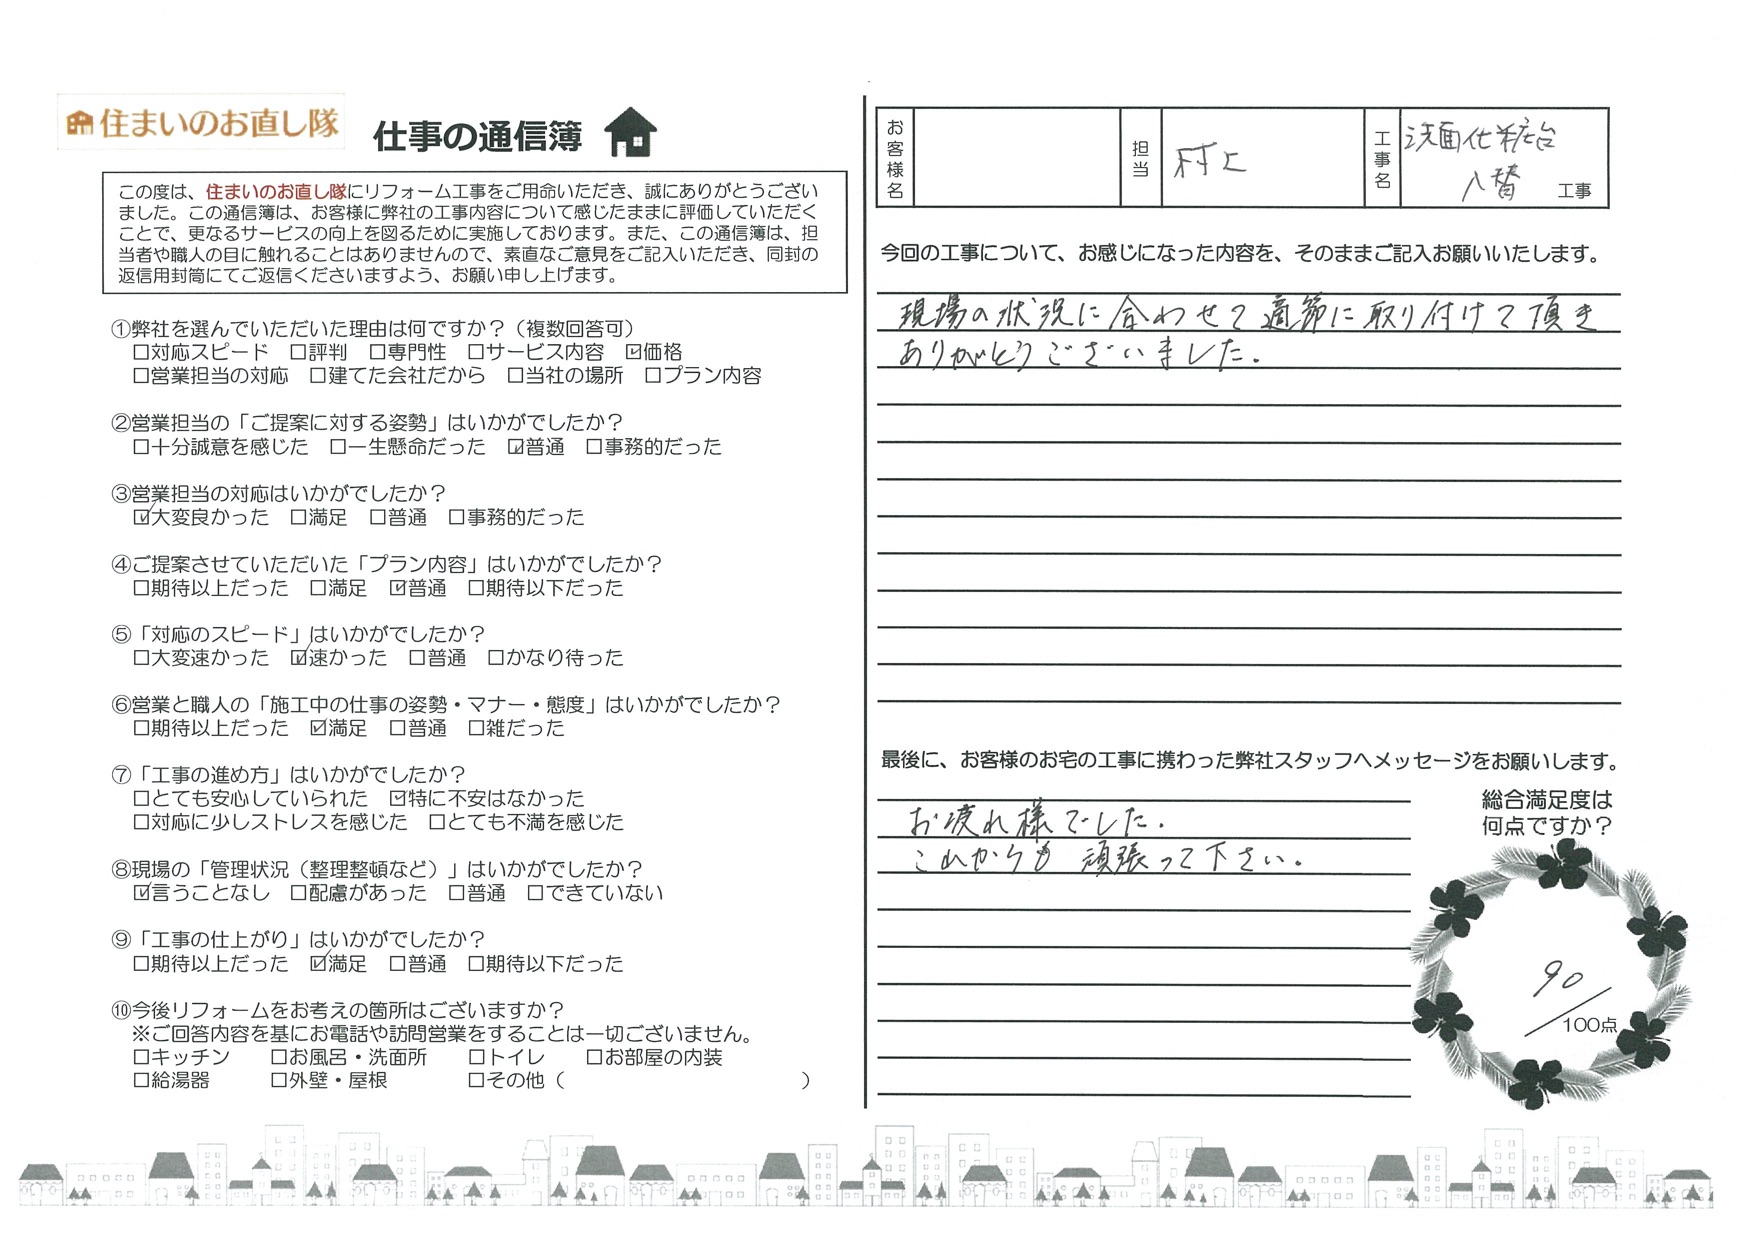 住まいのお直し隊
仕事の通信簿
この度は、住まいのお直し隊にリフォーム工事をご用命いただき、誠にありがとうござい
ました。この通信簿は、お客様に弊社の工事内容について感じたままに評価していただく
ことで、更なるサービスの向上を図るために実施しております。また、この通信簿は、担
当者や職人の目に触れることはありませんので、素直なご意見をご記入いただき、同封の
返信用封筒にてご返信くださいますよう、お願い申し上げます。
①弊社を選んでいただいた理由は何ですか？（複数回答可）
□対応スピード □評判 □専門性 □サービス内容 ☑価格
□営業担当の対応 □建てた会社だから □当社の場所 □プラン内容
②営業担当の「ご提案に対する姿勢」はいかがでしたか？
□十分誠意を感じた □一生懸命だった ☑普通 □事務的だった
③営業担当の対応はいかがでしたか？
☑大変良かった □満足 □普通 □事務的だった
④ご提案させていただいた「プラン内容」はいかがでしたか？
□期待以上だった □満足 ☑普通 □期待以下だった
⑤「対応のスピード」はいかがでしたか？
□大変速かった ☑速かった □普通 □かなり待った
⑥営業と職人の「施工中の仕事の姿勢・マナー・態度」はいかがでしたか？
□期待以上だった ☑満足 □普通 □雑だった
⑦「工事の進め方」はいかがでしたか？
□とても安心していられた ☑特に不安はなかった
□対応に少しストレスを感じた □とても不満を感じた
⑧現場の「管理状況（整理整頓など）」はいかがでしたか？
☑言うことなし □配慮があった □普通 □できていない
⑨「工事の仕上がり」はいかがでしたか？
□期待以上だった ☑満足 □普通 □期待以下だった
⑩今後リフォームをお考えの箇所はございますか？
※ご回答内容を基にお電話や訪問営業をすることは一切ございません。
□キッチン □お風呂・洗面所 □トイレ □お部屋の内装
□給湯器 □外壁・屋根 □その他（ ）
お客様名
担当 村上
工事名 洗面化粧台
入替 工事
今回の工事について、お感じになった内容を、そのままご記入お願いいたします。
現場の状況に合わせて適節に取り付けて頂き
ありがとうございました。
最後に、お客様のお宅の工事に携わった弊社スタッフへメッセージをお願いします。
お疲れ様でした.
これからも 頑張って下さい。
総合満足度は
何点ですか？
90
100点